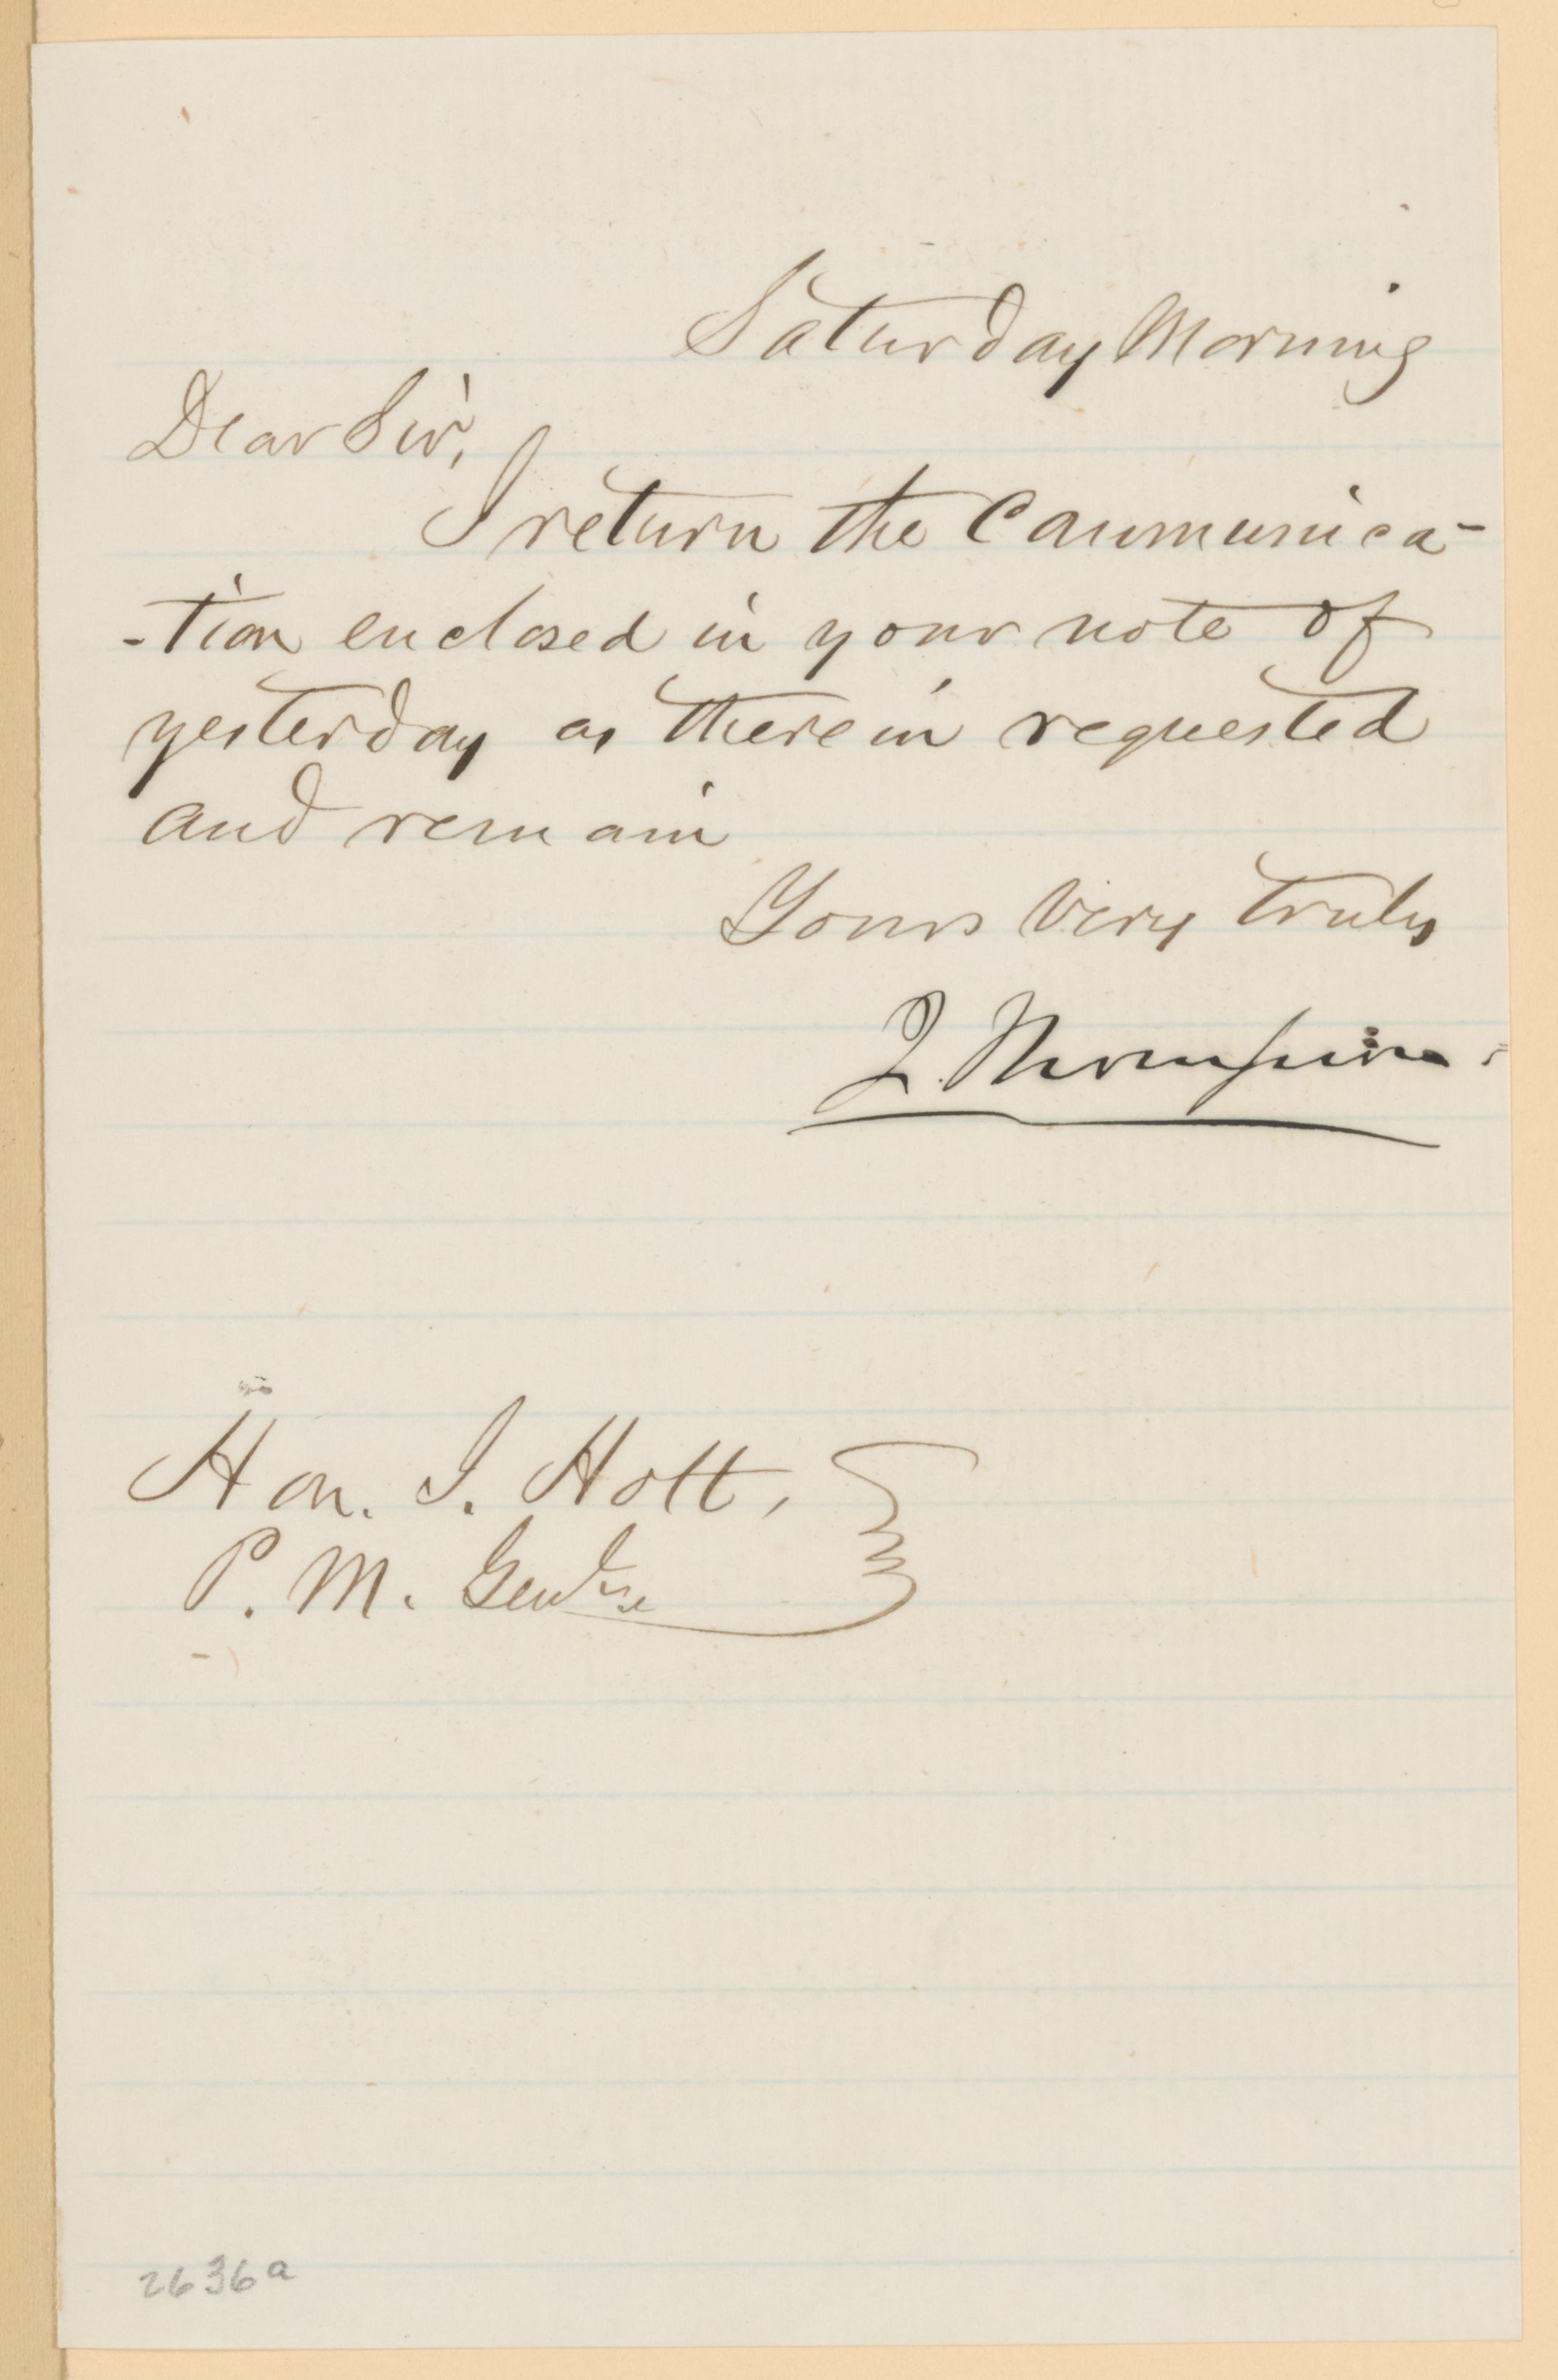 Saturday Morning
Dear Sir,
I return the Communica-
-tion enclosed in your note of
yesterday as therein requested
and remain
Yours Very truly
J. Thompson
Hon. J. Holt,
P. M. Genl
2636a